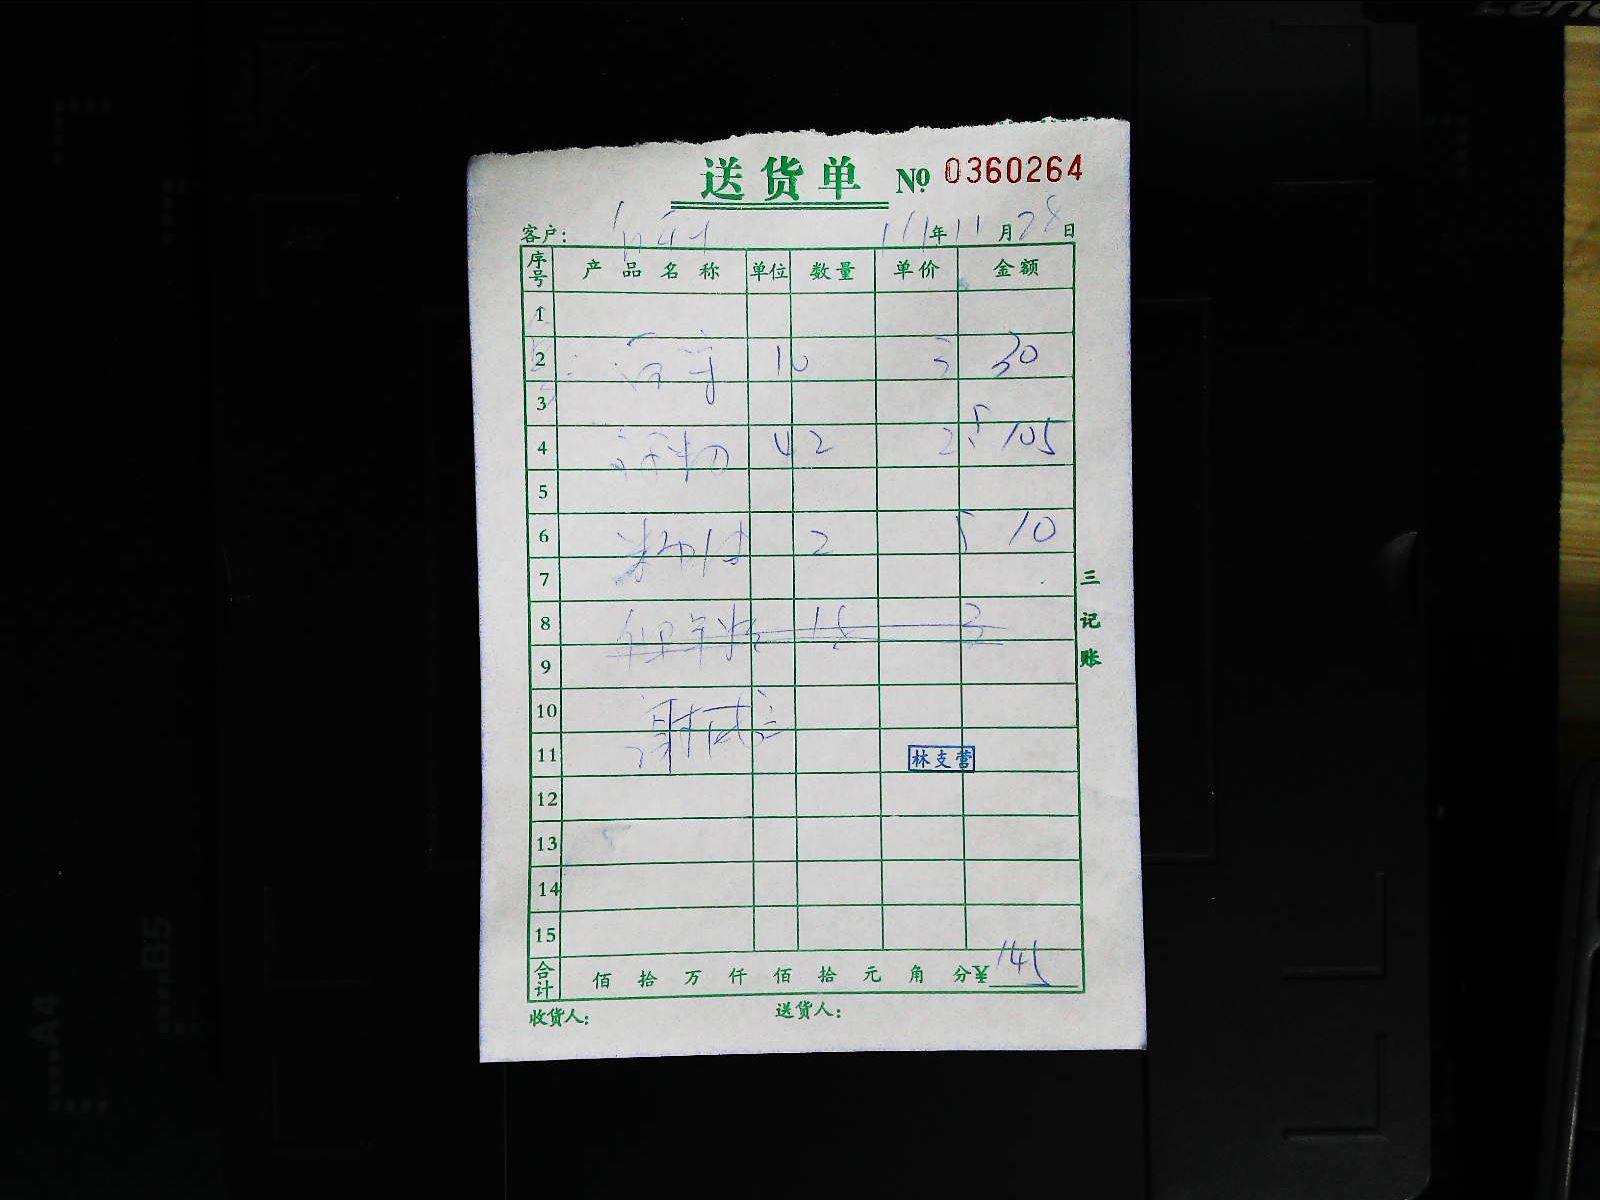 Leno
送货单 № 0360264
客户： 111年11月28日
序号 产品名称 单位 数量 单价 金额
1
2 10 3 30
3
4 42 2.5 105
5
6 2 5 10
7
8 15 3
9
10
11 林支营
12
13
14
15
合计 佰 拾 万 仟 佰 拾 元 角 分¥ 145
收货人： 送货人：
三记账
B5
A4